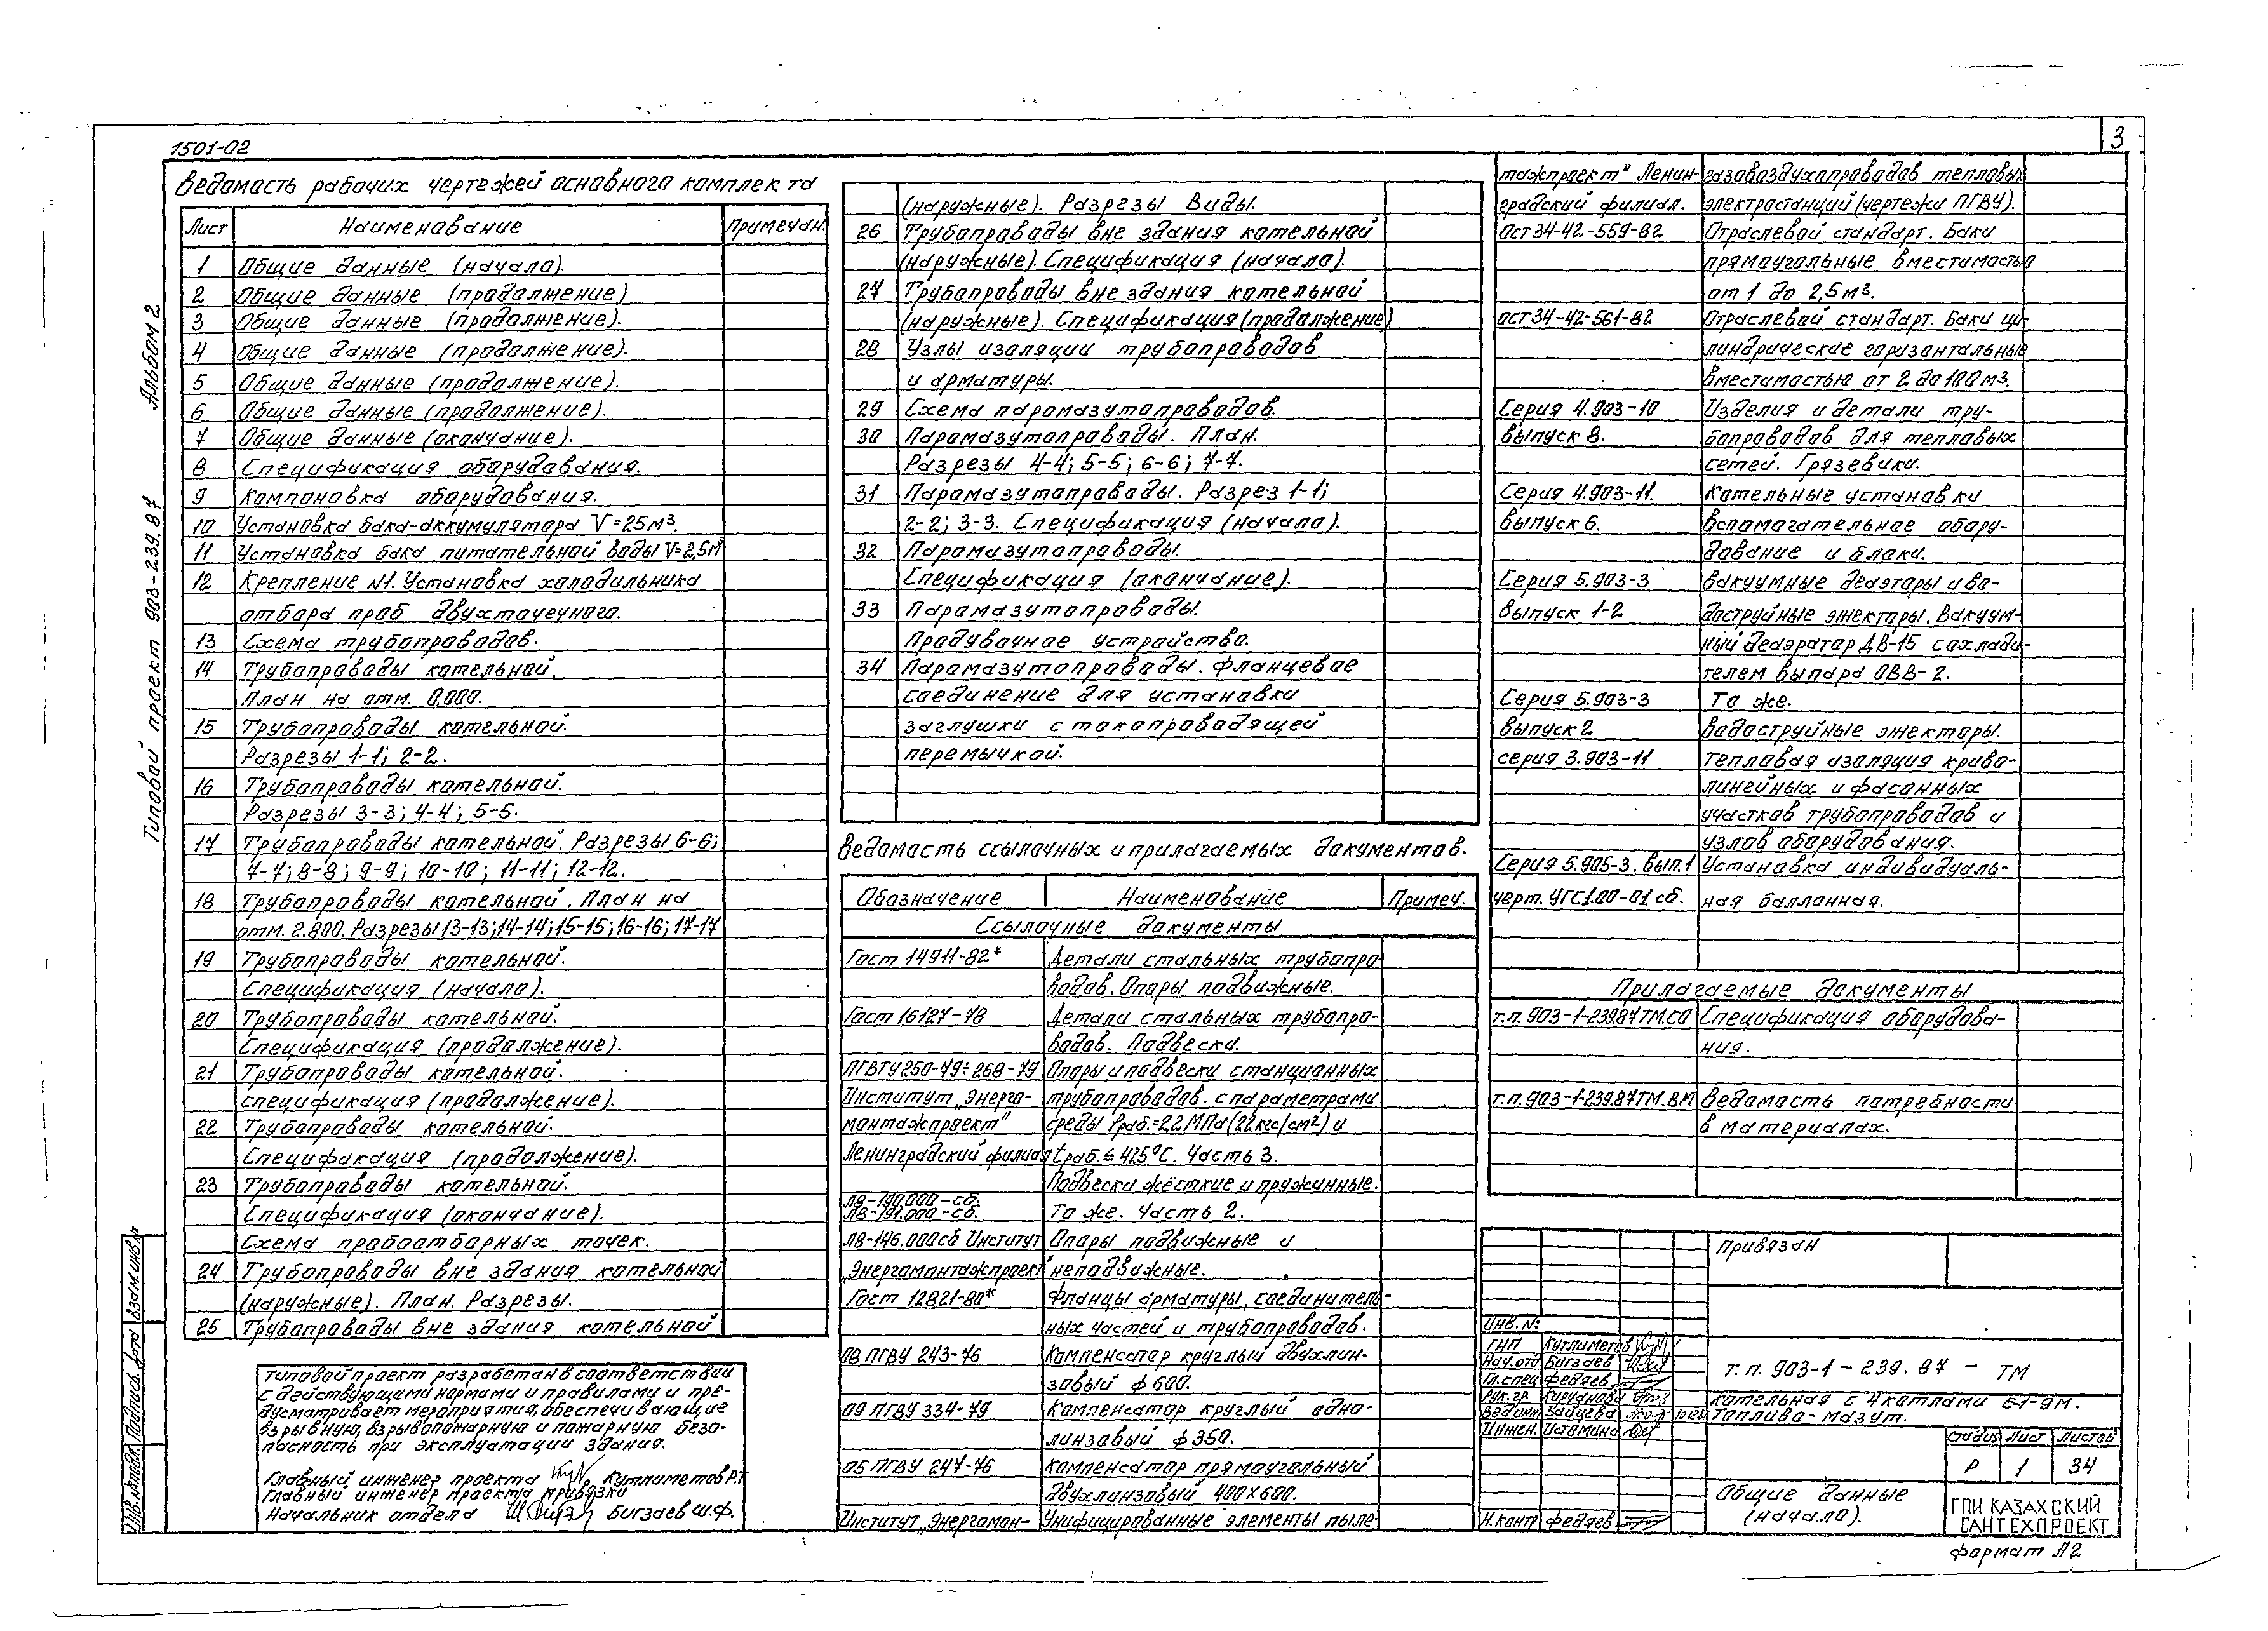 3
1501-02
Альбом 2
Типовой проект 903-239.87
Ведомость рабочих чертежей основного комплекта
Лист Наименование Примечан.
1 Общие данные (начало).
2 Общие данные (продолжение)
3 Общие данные (продолжение).
4 Общие данные (продолжение).
5 Общие данные (продолжение).
6 Общие данные (продолжение).
7 Общие данные (окончание).
8 Спецификация оборудования.
9 Компоновка оборудования.
10 Установка бака-аккумулятора V=25м³.
11 Установка бака питательной воды V=2,5м³
12 Крепление №1. Установка холодильника
отбора проб двухточечного.
13 Схема трубопроводов.
14 Трубопроводы котельной.
План на отм. 0,000.
15 Трубопроводы котельной.
Разрезы 1-1; 2-2.
16 Трубопроводы котельной.
Разрезы 3-3; 4-4; 5-5.
17 Трубопроводы котельной. Разрезы 6-6;
7-7; 8-8; 9-9; 10-10; 11-11; 12-12.
18 Трубопроводы котельной. План на
отм. 2.800. Разрезы 13-13; 14-14; 15-15; 16-16; 17-17
19 Трубопроводы котельной.
Спецификация (начало).
20 Трубопроводы котельной.
Спецификация (продолжение).
21 Трубопроводы котельной.
спецификация (продолжение).
22 Трубопроводы котельной.
Спецификация (продолжение).
23 Трубопроводы котельной.
Спецификация (окончание).
Схема пробоотборных точек.
24 Трубопроводы вне здания котельной
(наружные). План. Разрезы.
25 Трубопроводы вне здания котельной
Типовой проект разработан в соответствии
с действующими нормами и правилами и пре-
дусматривает мероприятия, обеспечивающие
взрывную, взрывопожарную и пожарную безо-
пасность при эксплуатации здания.
Главный инженер проекта Кутлиметов Р.Т.
Главный инженер проекта привязки
Начальник отдела Бигзаев Ш.Ф.
(наружные). Разрезы Виды.
26 Трубопроводы вне здания котельной
(наружные). Спецификация (начало).
27 Трубопроводы вне здания котельной
(наружные). Спецификация (продолжение)
28 Узлы изоляции трубопроводов
и арматуры.
29 Схема паромазутопроводов.
30 Паромазутопроводы. План.
Разрезы 4-4; 5-5; 6-6; 7-7.
31 Паромазутопроводы. Разрез 1-1;
2-2; 3-3. Спецификация (начало).
32 Паромазутопроводы.
Спецификация (окончание).
33 Паромазутопроводы.
Продувочное устройство.
34 Паромазутопроводы. Фланцевое
соединение для установки
заглушки с токопроводящей
перемычкой.
Ведомость ссылочных и прилагаемых документов.
Обозначение Наименование Примеч.
Ссылочные документы
Гост 14911-82* Детали стальных трубопро
водов. Опоры подвижные.
Гост 16127-78 Детали стальных трубопро-
водов. Подвески.
ПГВТУ250-79÷268-79 Опоры и подвески станционных
Институт „Энерго- трубопроводов. с параметрами
монтажпроект" среды Рраб.=2.2 МПа (22 кгс/см²) и
Ленинградский филиал tраб.≤ 425°С. Часть 3.
Подвески жёсткие и пружинные.
Л8-190.000-сб.
Л8-191.000-сб. То же. Часть 2.
Л8-146.000сб Институт Опоры подвижные и
„Энергомонтажпроект неподвижные.
Гост 12821-80* Фланцы арматуры, соединитель-
ных частей и трубопроводов.
08 ПГВУ 243-76 Компенсатор круглый двухлин-
зовый ф 600.
09 ПГВУ 334-79 Компенсатор круглый одно-
линзовый ф 350.
05 ПГВУ 247-76 Компенсатор прямоугольный
двухлинзовый 400х600.
Институт „Энергомон- Унифицированные элементы пыле-
тажпроект" Ленин- газовоздухопроводов тепловых
градский филиал. электростанций (чертежи ПГВУ).
Ост 34-42-559-82 Отраслевой стандарт. Баки
прямоугольные вместимостью
от 1 до 2,5м³.
Ост 34-42-561-82 Отраслевой стандарт. Баки ци-
линдрические горизонтальные
вместимостью от 2 до 100 м³.
Серия 4.903-10 Изделия и детали тру-
выпуск 8. бопроводов для тепловых
сетей. Грязевики.
Серия 4.903-11. Котельные установки
выпуск 6. вспомогательное обору-
дование и блоки.
Серия 5.903-3 Вакуумные деаэторы и во-
выпуск 1-2 доструйные эжекторы. Вакуум-
ный деаэратор ДВ-15 с охлади-
телем выпара ОВВ-2.
Серия 5.903-3 То же.
выпуск 2 Водоструйные эжекторы.
серия 3.903-11 Тепловая изоляция криво-
линейных и фасонных
участков трубопроводов и
узлов оборудования.
Серия 5.905-3. вып.1 Установка индивидуаль-
черт. УГС1.00-01 сб. ная баллонная.
Прилагаемые документы
т.п. 903-1-239.87 ТМ.СО Спецификация оборудова-
ния.
т.п. 903-1-239.87 ТМ.ВМ Ведомость потребности
в материалах.
Привязан
Инв. №
ГИП Кутлиметов
Нач.отд Бигзаев
Гл.спец Федяев
Рук.гр.
Вед.инж Зайцева
Инжен. Истомина
Н.контр Федяев
т.п. 903-1-239.87 - ТМ
Котельная с 4 котлами Е-1-9М.
Топливо-мазут.
Стадия Лист Листов
Р 1 34
Общие данные
(начало).
ГПИ КАЗАХСКИЙ
САНТЕХПРОЕКТ
формат А2
Взам.инв.№
Подпись. дата
Инв. № подл.